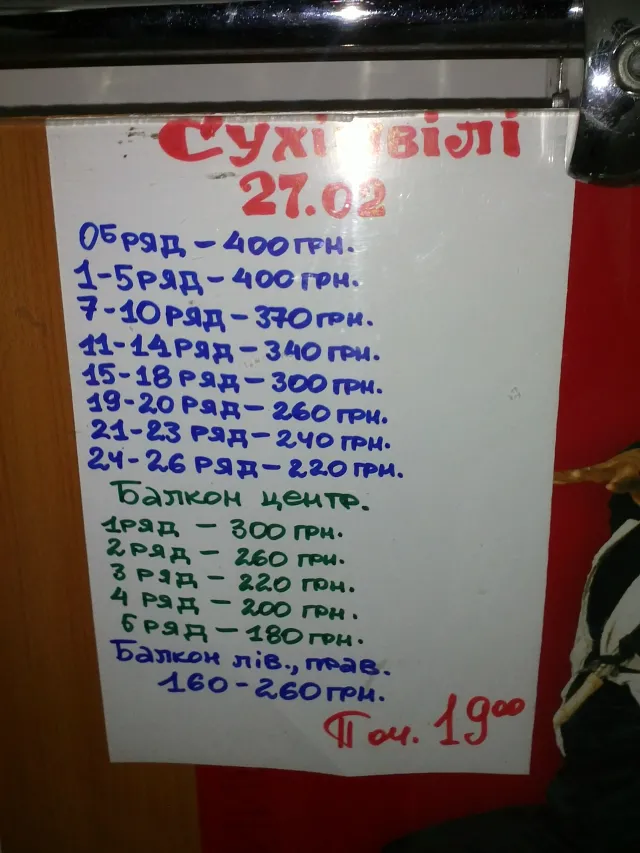 Сухішвілі
27.02
0б ряд – 400 грн.
1-5 ряд – 400 грн.
7-10 ряд – 370 грн.
11-14 ряд – 340 грн.
15-18 ряд – 300 грн.
19-20 ряд – 260 грн.
21-23 ряд – 240 грн.
24-26 ряд – 220 грн.
Балкон центр.
1 ряд – 300 грн.
2 ряд – 260 грн.
3 ряд – 220 грн.
4 ряд – 200 грн.
6 ряд – 180 грн.
Балкон лів., прав.
160-260 грн.
Поч. 19⁰⁰